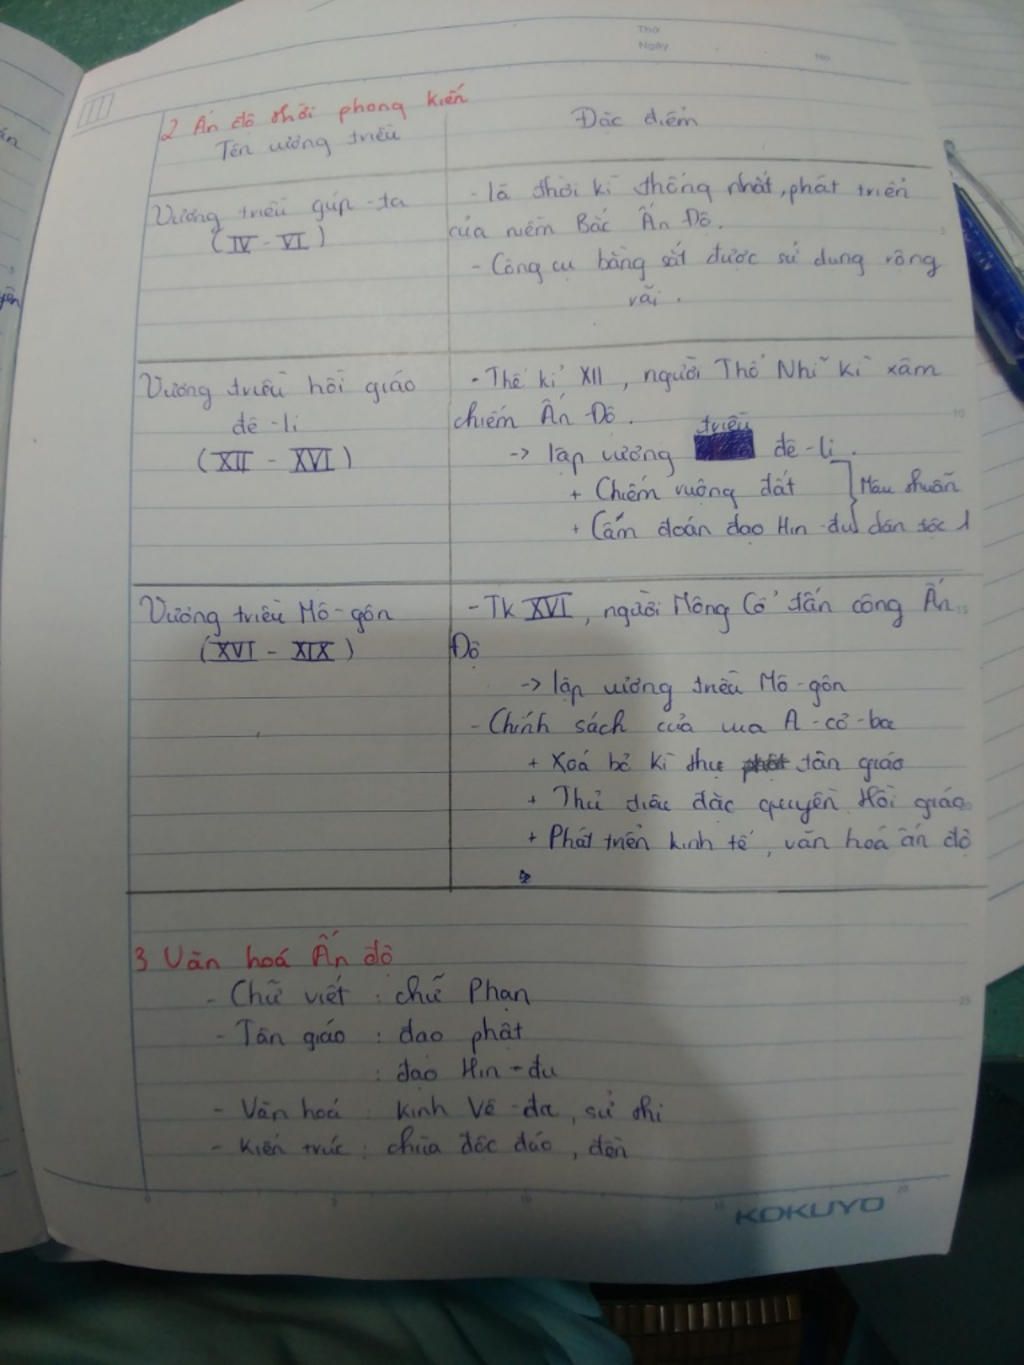 Thứ
Ngày
No
2 Ấn độ thời phong kiến
Tên vương triều
Đặc điểm
Vương triều gúp-ta
(IV - VI)
- là thời kì thống nhất, phát triển
của miền Bắc Ấn Độ.
- Công cụ bằng sắt được sử dụng rộng
rãi.
Vương triều hồi giáo
đê-li
(XII - XVI)
- Thế kỉ XII, người Thổ Nhĩ Kì xâm
chiếm Ấn Độ.
-> lập vương triều đê-li.
+ Chiếm ruộng đất
+ Cấm đoán đạo Hin-đu
Mâu thuẫn
dân tộc
Vương triều Mô-gôn
(XVI - XIX)
- TK XVI, người Mông Cổ tấn công Ấn
Độ
-> lập vương triều Mô-gôn
- Chính sách của vua A-cơ-ba
+ Xoá bỏ kì thị tôn giáo
+ Thủ tiêu đặc quyền Hồi giáo
+ Phát triển kinh tế, văn hoá ấn độ
3 Văn hoá Ấn độ
- Chữ viết : chữ Phạn
- Tôn giáo : đạo phật
: đạo Hin-đu
- Văn hoá : Kinh Vê-đa, sử thi
- Kiến trúc : chùa độc đáo, đền
KOKUYO